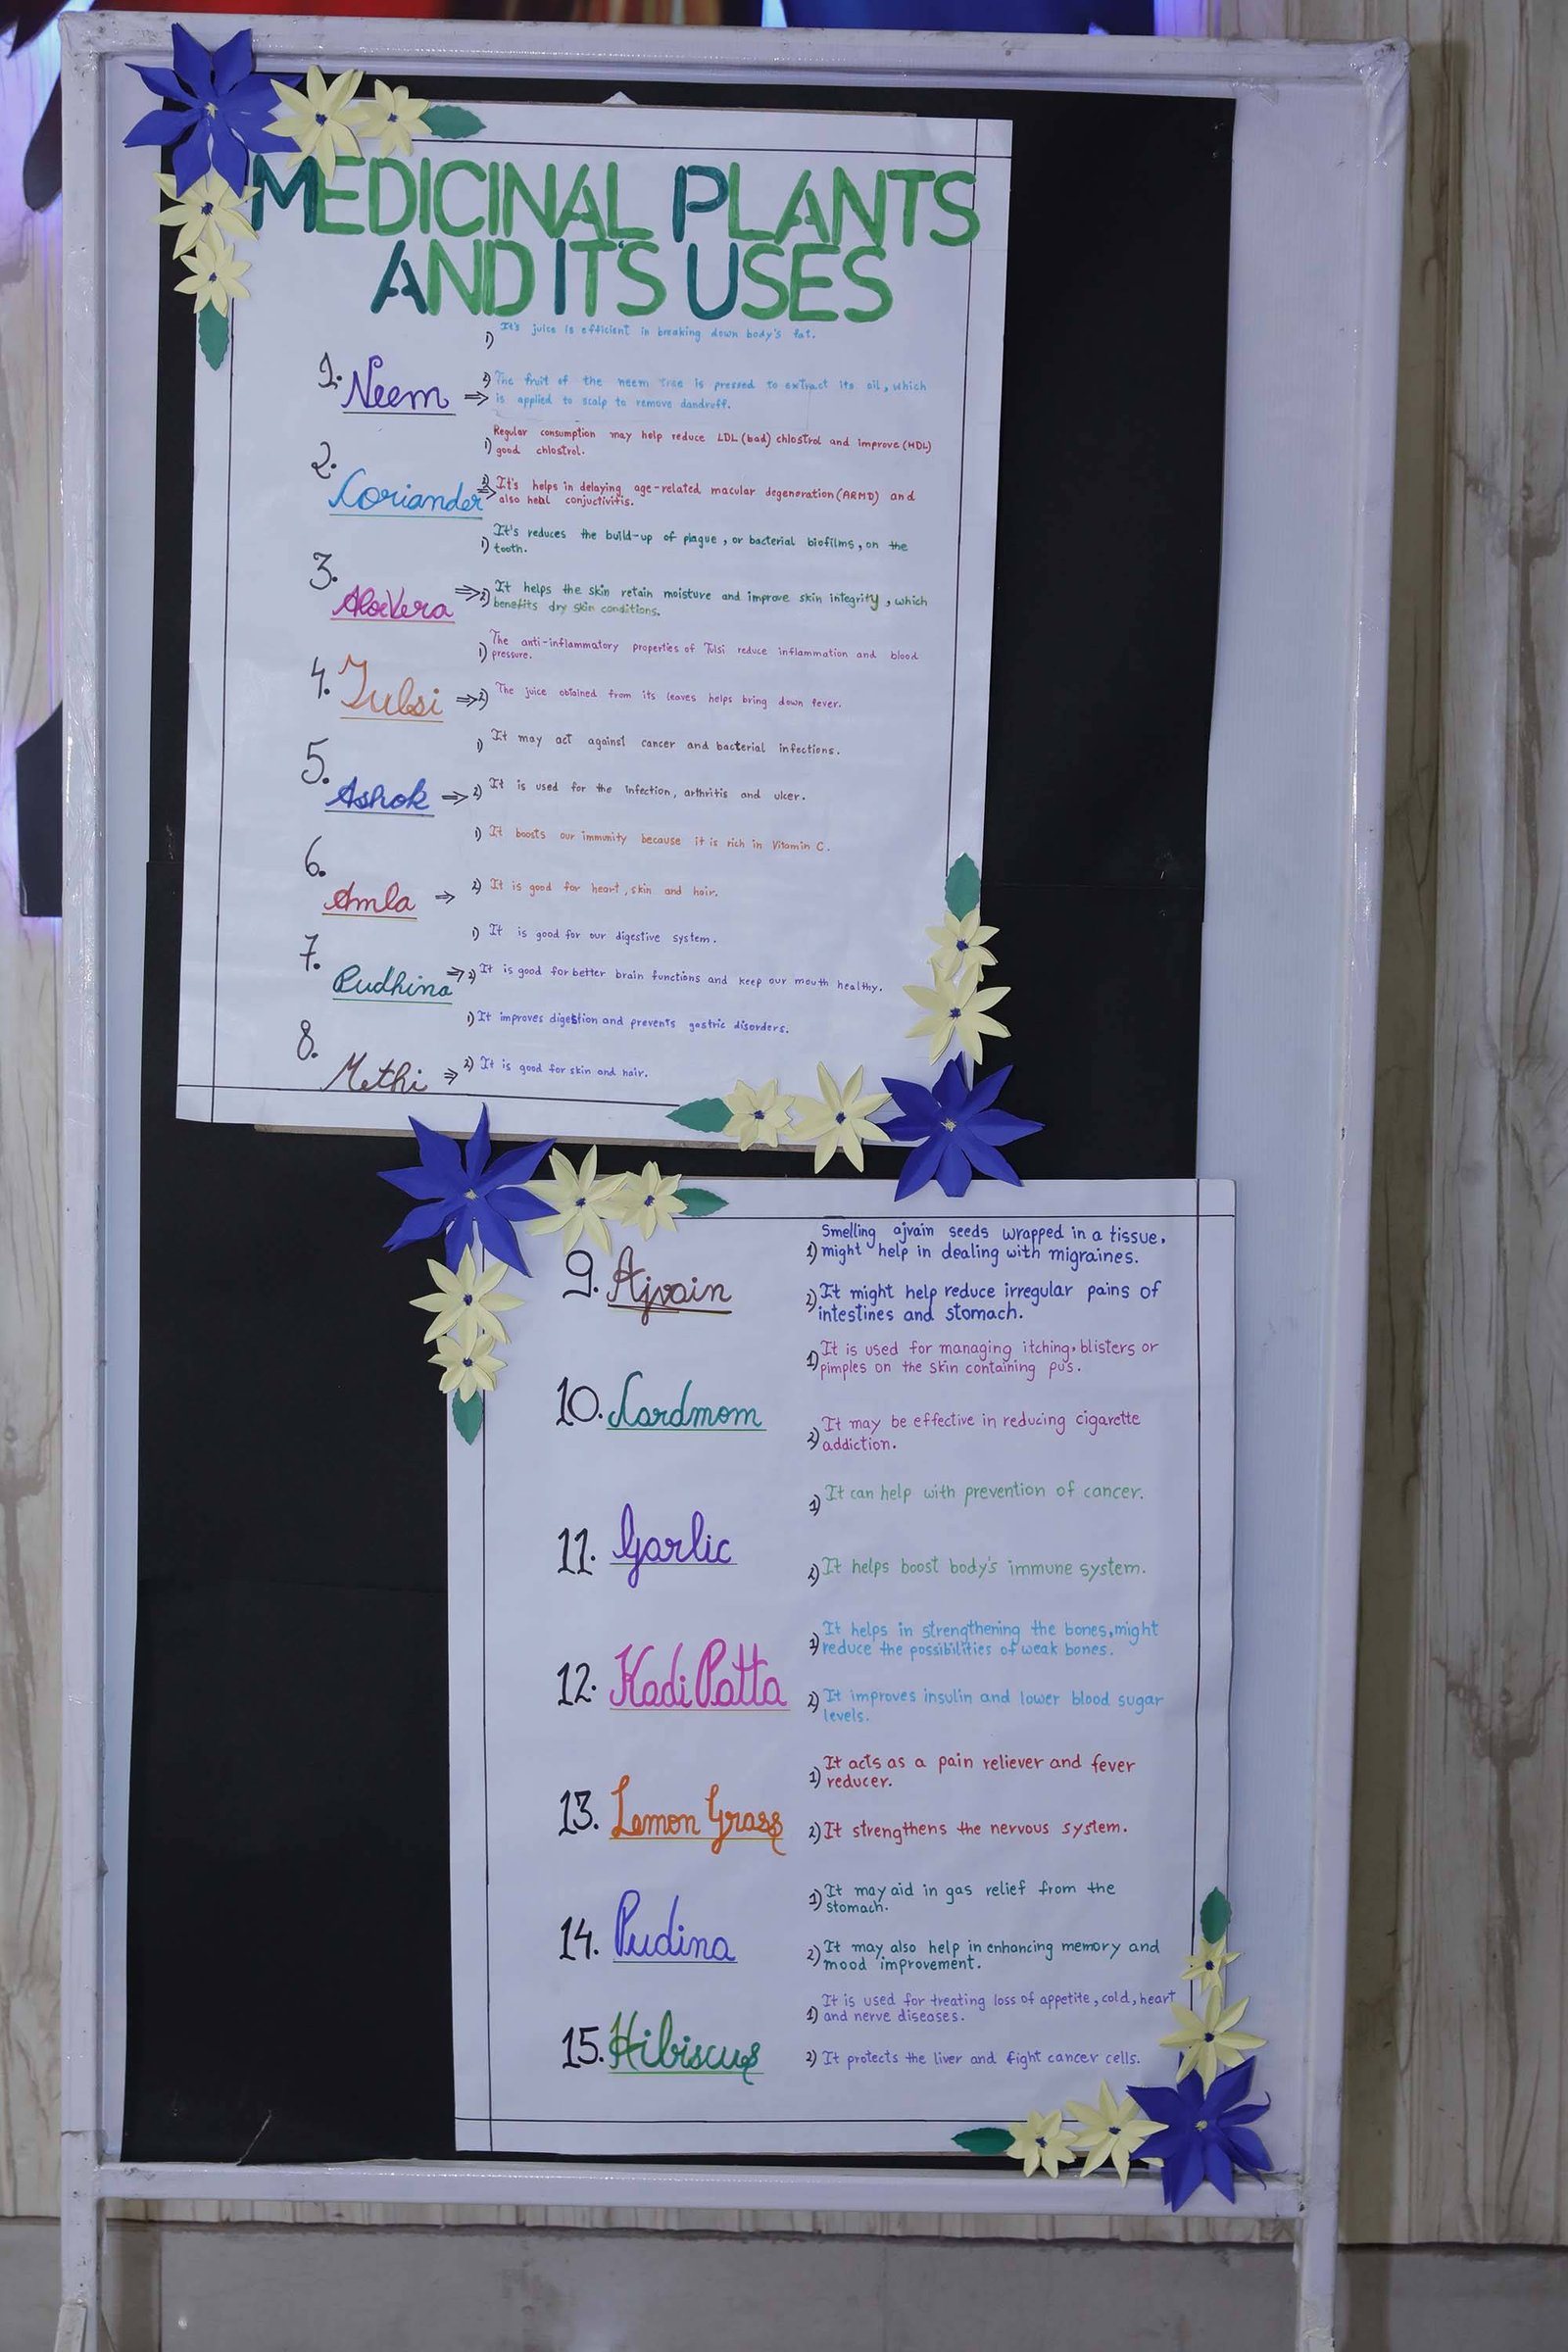 MEDICINAL PLANTS
AND IT'S USES
1. Neem ⇒
1) It's juice is efficient in breaking down body's fat.
2) The fruit of the neem tree is pressed to extract its oil, which
is applied to scalp to remove dandruff.
2. Coriander ⇒
1) Regular consumption may help reduce LDL (bad) chlostrol and improve (HDL)
good chlostrol.
2) It's helps in delaying age-related macular degeneration (ARMD) and
also heal conjuctivitis.
3. AloeVera ⇒
1) It's reduces the build-up of plague, or bacterial biofilms, on the
tooth.
2) It helps the skin retain moisture and improve skin integrity, which
benefits dry skin conditions.
4. Tulsi ⇒
1) The anti-inflammatory properties of Tulsi reduce inflammation and blood
pressure.
2) The juice obtained from its leaves helps bring down fever.
5. Ashok ⇒
1) It may act against cancer and bacterial infections.
2) It is used for the infection, arthritis and ulcer.
6. Amla ⇒
1) It boosts our immunity because it is rich in Vitamin C.
2) It is good for heart, skin and hair.
7. Pudhina ⇒
1) It is good for our digestive system.
2) It is good for better brain functions and keep our mouth healthy.
8. Methi ⇒
1) It improves digestion and prevents gastric disorders.
2) It is good for skin and hair.
9. Ajvain
1) Smelling ajvain seeds wrapped in a tissue,
might help in dealing with migraines.
2) It might help reduce irregular pains of
intestines and stomach.
10. Cardmom
1) It is used for managing itching, blisters or
pimples on the skin containing pus.
2) It may be effective in reducing cigarette
addiction.
11. Garlic
1) It can help with prevention of cancer.
2) It helps boost body's immune system.
12. Kadi Patta
1) It helps in strengthening the bones, might
reduce the possibilities of weak bones.
2) It improves insulin and lower blood sugar
levels.
13. Lemon Grass
1) It acts as a pain reliever and fever
reducer.
2) It strengthens the nervous system.
14. Pudina
1) It may aid in gas relief from the
stomach.
2) It may also help in enhancing memory and
mood improvement.
15. Hibiscus
1) It is used for treating loss of appetite, cold, heart
and nerve diseases.
2) It protects the liver and fight cancer cells.